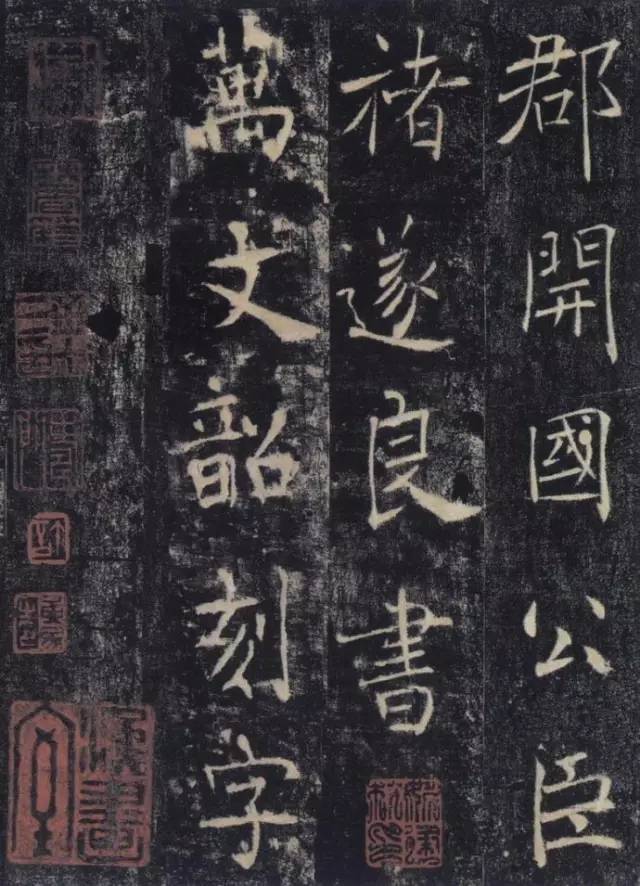 郡開國公臣
褚遂良書
萬文韶刻字